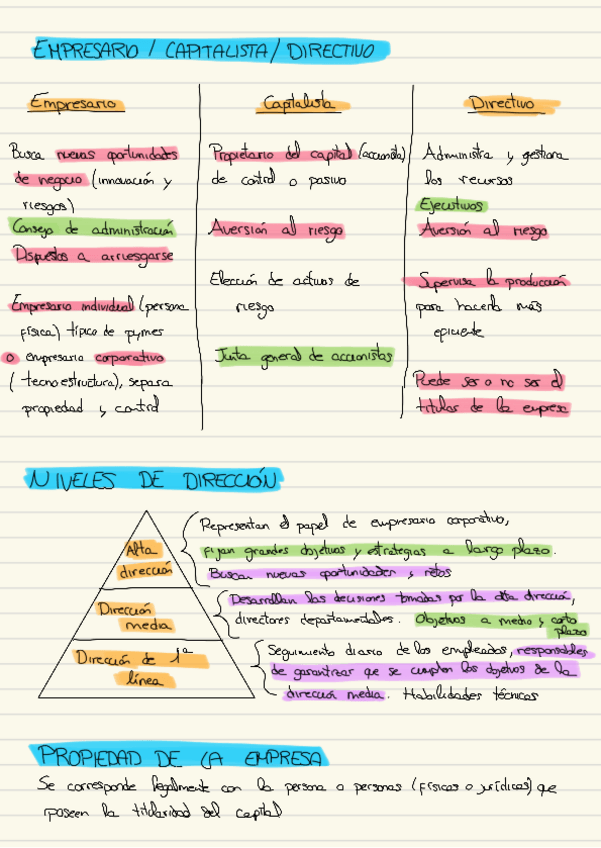 EMPRESARIO / CAPITALISTA / DIRECTIVO
Empresario
Busca nuevas oportunidades
de negocio (innovación y
riesgos)
Consejo de administración
Dispuestos a arriesgarse
Empresario individual (persona
física) típico de pymes
o empresario corporativo
(tecnoestructura), separa
propiedad y control
Capitalista
Propietario del capital (accionista)
de control o pasivo
Aversión al riesgo
Elección de activos de
riesgo
Junta general de accionistas
Directivo
Administra y gestiona
los recursos
Ejecutivos
Aversión al riesgo
Supervisa la producción
para hacerla más
eficiente
Puede ser o no ser el
titular de la empresa
NIVELES DE DIRECCIÓN
Alta
dirección
Representan el papel de empresario corporativo,
Fijan grandes objetivos y estrategias a largo plazo.
Buscan nuevas oportunidades y retos
Dirección
media
Desarrollan las decisiones tomadas por la alta dirección,
directores departamentales. Objetivos a medio y corto
plazo
Dirección de 1ª
línea
Seguimiento diario de los empleados, responsables
de garantizar que se cumplan los objetivos de la
dirección media. Habilidades técnicas
PROPIEDAD DE LA EMPRESA
Se corresponde legalmente con la persona o personas (físicas o jurídicas) que
poseen la titularidad del capital